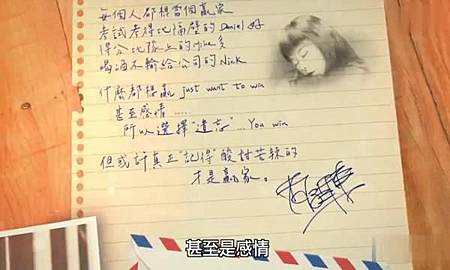 每個人都想當個贏家
考試考得比隔壁的 Daniel 好
得分比隊上的 Mike 多
喝酒不輸給公司的 Nick
什麼都想贏 just want to win
甚至感情......
所以選擇"遺忘"... You win
但或許真正"記得"酸甜苦辣的
才是贏家。
甚至是感情